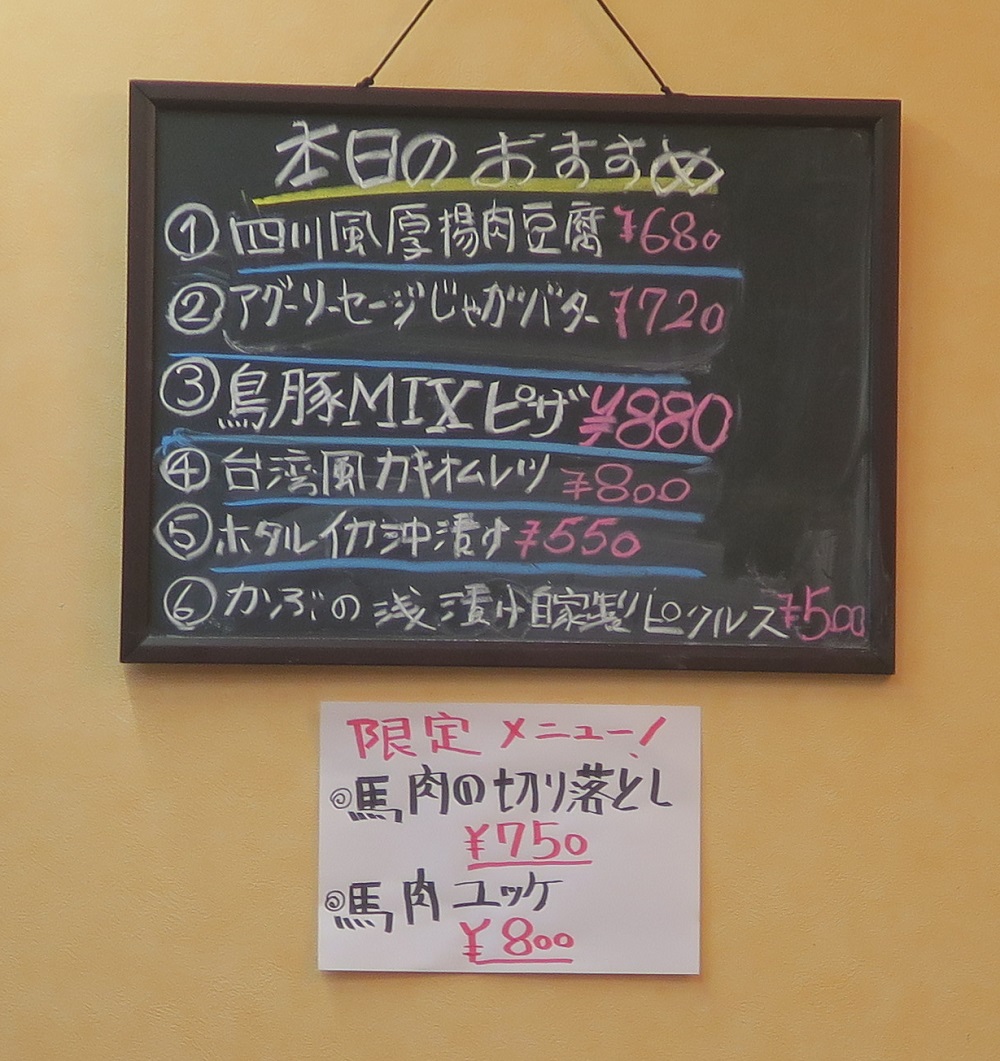 本日のおすすめ
① 四川風厚揚肉豆腐 ¥680
② アグーソーセージじゃがバター ¥720
③ 鳥豚MIXピザ ¥880
④ 台湾風カキオムレツ ¥800
⑤ ホタルイカ沖漬け ¥550
⑥ かぶの浅漬け自家製ピクルス ¥500
限定メニュー!
◎馬肉の切り落とし
¥750
◎馬肉ユッケ
¥800